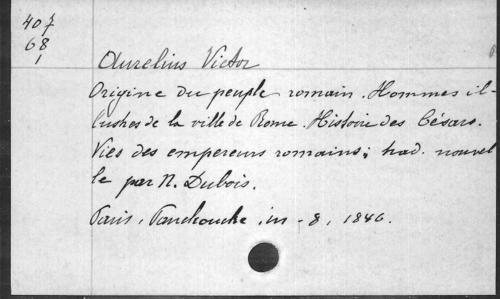 407
68
1
Aurelius Victor
Origine du peuple romain. Hommes il-
lustres de la ville de Rome. Histoire des Césars.
Vies des empereurs romains; trad. nouvel
le par N. Dubois.
Paris, Panckoucke, in-8, 1846.